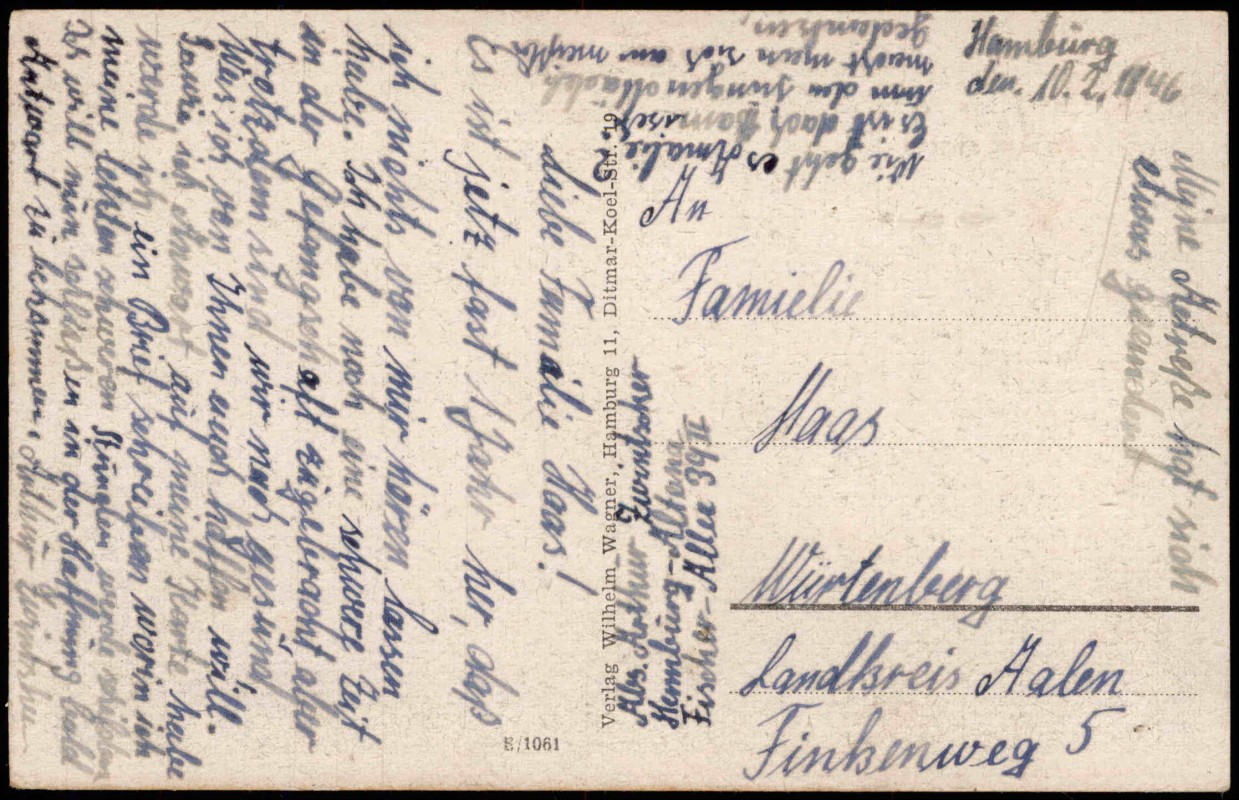 Hamburg
den. 10. 2. 1946
Liebe Familie Haas!
Es ist jetz fast 1 Jahr her, daß
ich nichts von mir hören lassen
habe. Ich habe noch eine schwere Zeit
in der Gefangsch oft zugebracht aber
trotzdem sind wir noch gesund,
Was ich von Ihnen auch hoffen will.
ich Antwort auf meine Karte habe
werde ich ein Brief schreiben worin ich
meine letzten schweren Stunden werde
Ich will nun schließen in der Hoffnung bald
Antwort zu bekommen.
Wie geht es Amalie?
Es ist doch
um den jungen
macht man sich am meisten
gedanken,
An
Familie
Haas
Würtenberg
Landkreis Aalen
Finkenweg 5
Meine Adreße hat sich
etwas geändert
Abs. Arthur
Hamburg-Altona
Fischer-Allee 39 II
Verlag Wilhelm Wagner, Hamburg 11, Ditmar-Koel-Str. 19
E/1061